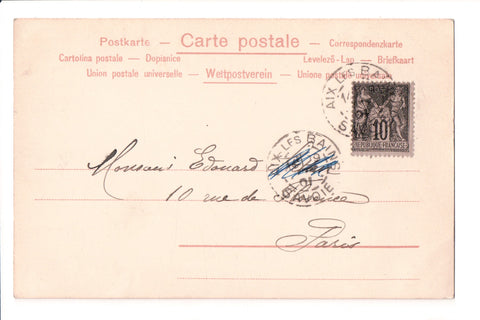 Postkarte — Carte postale — Correspondenzkarte
Cartolina postale — Dopisnice Levelező-Lap — Briefkaart
Union postale universelle — Weltpostverein — Unione postale universale
AIX-LES-BAINS
10
REPUBLIQUE FRANÇAISE
AIX-LES-BAINS
SAVOIE
Monsieur Edouard
10 rue de
Paris